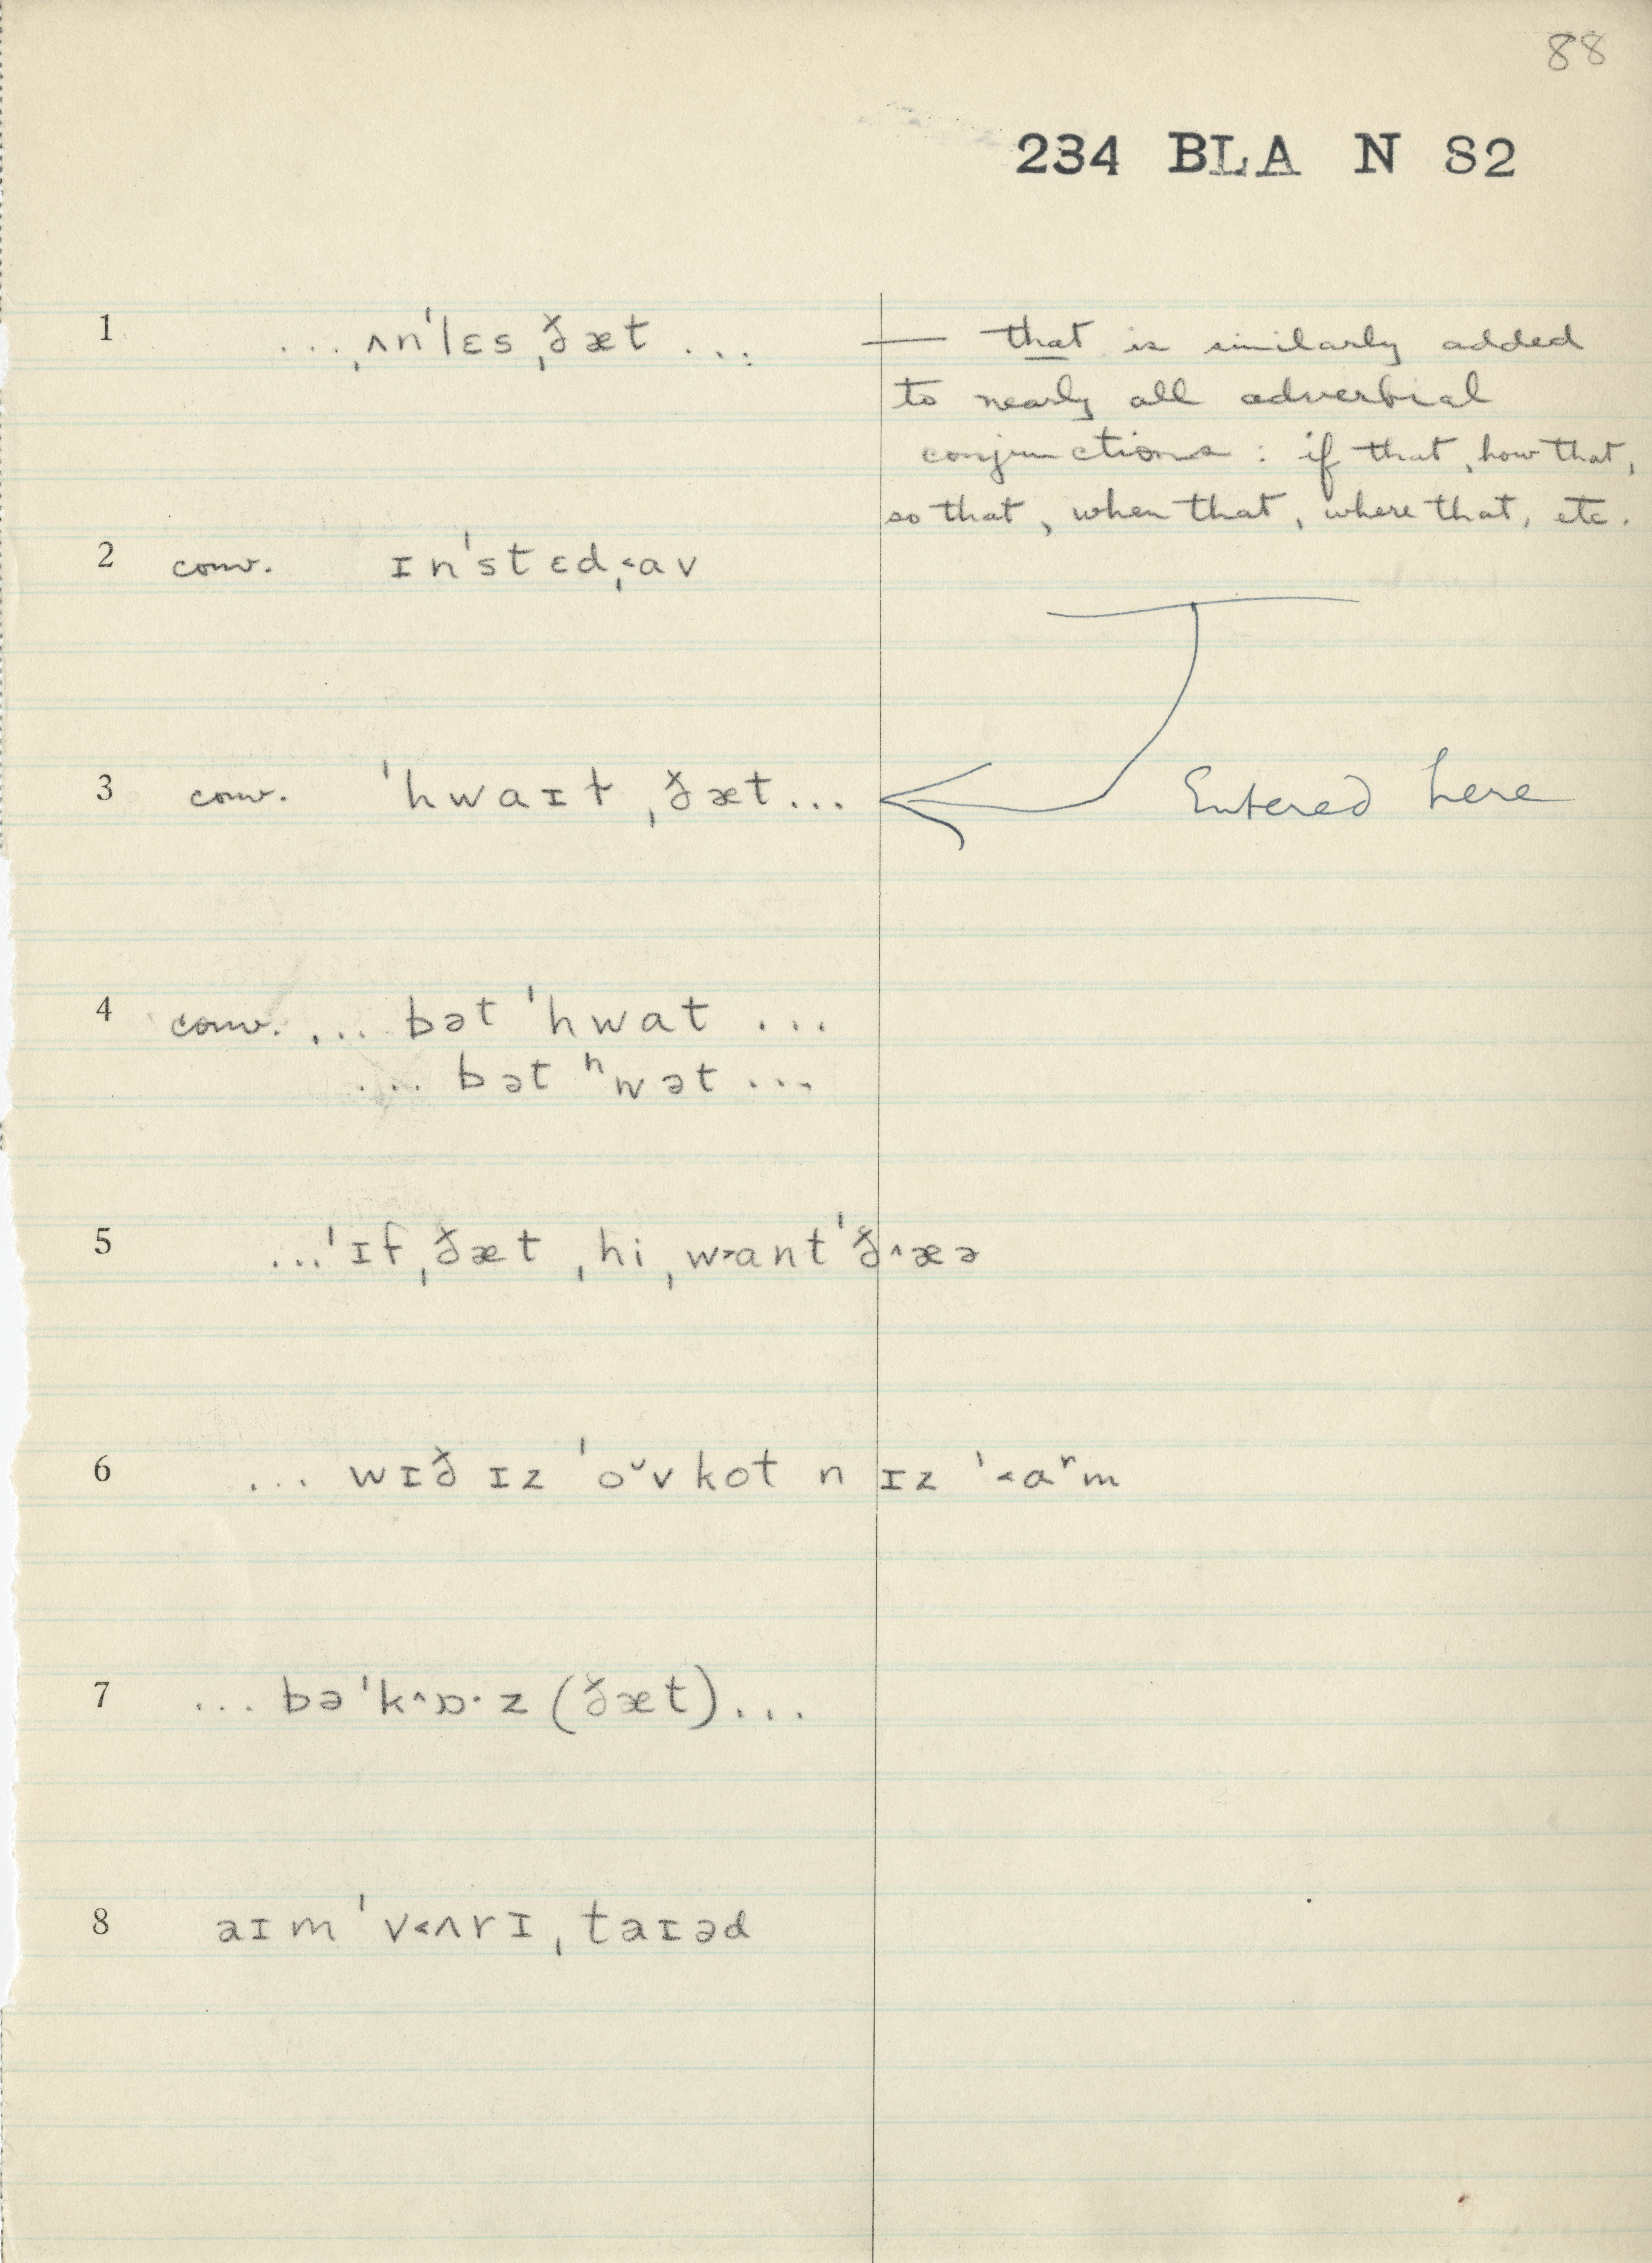 88
234 BLA N S2
1 ...ˌʌnˈlɛsˌðæt...
— that is similarly added
to nearly all adverbial
conjunctions : if that, how that,
so that, when that, where that, etc.
2 conv. ɪnˈstɛdˌ˂av
3 conv. ˈhwaɪt ˌðæt...
Entered here
4 conv. ... bət ˈhwat ...
... bət ʰwət ...
5 ...ˈɪfˌðæt ˌhi ˌw˃antˈð˄æə
6 ... wɪð ɪz ˈo˅vkot n ɪz ˈ˂aʳm
7 ... bəˈk˄ɒ·z (ðæt)...
8 aɪm ˈv˂ʌrɪˌtaɪəd